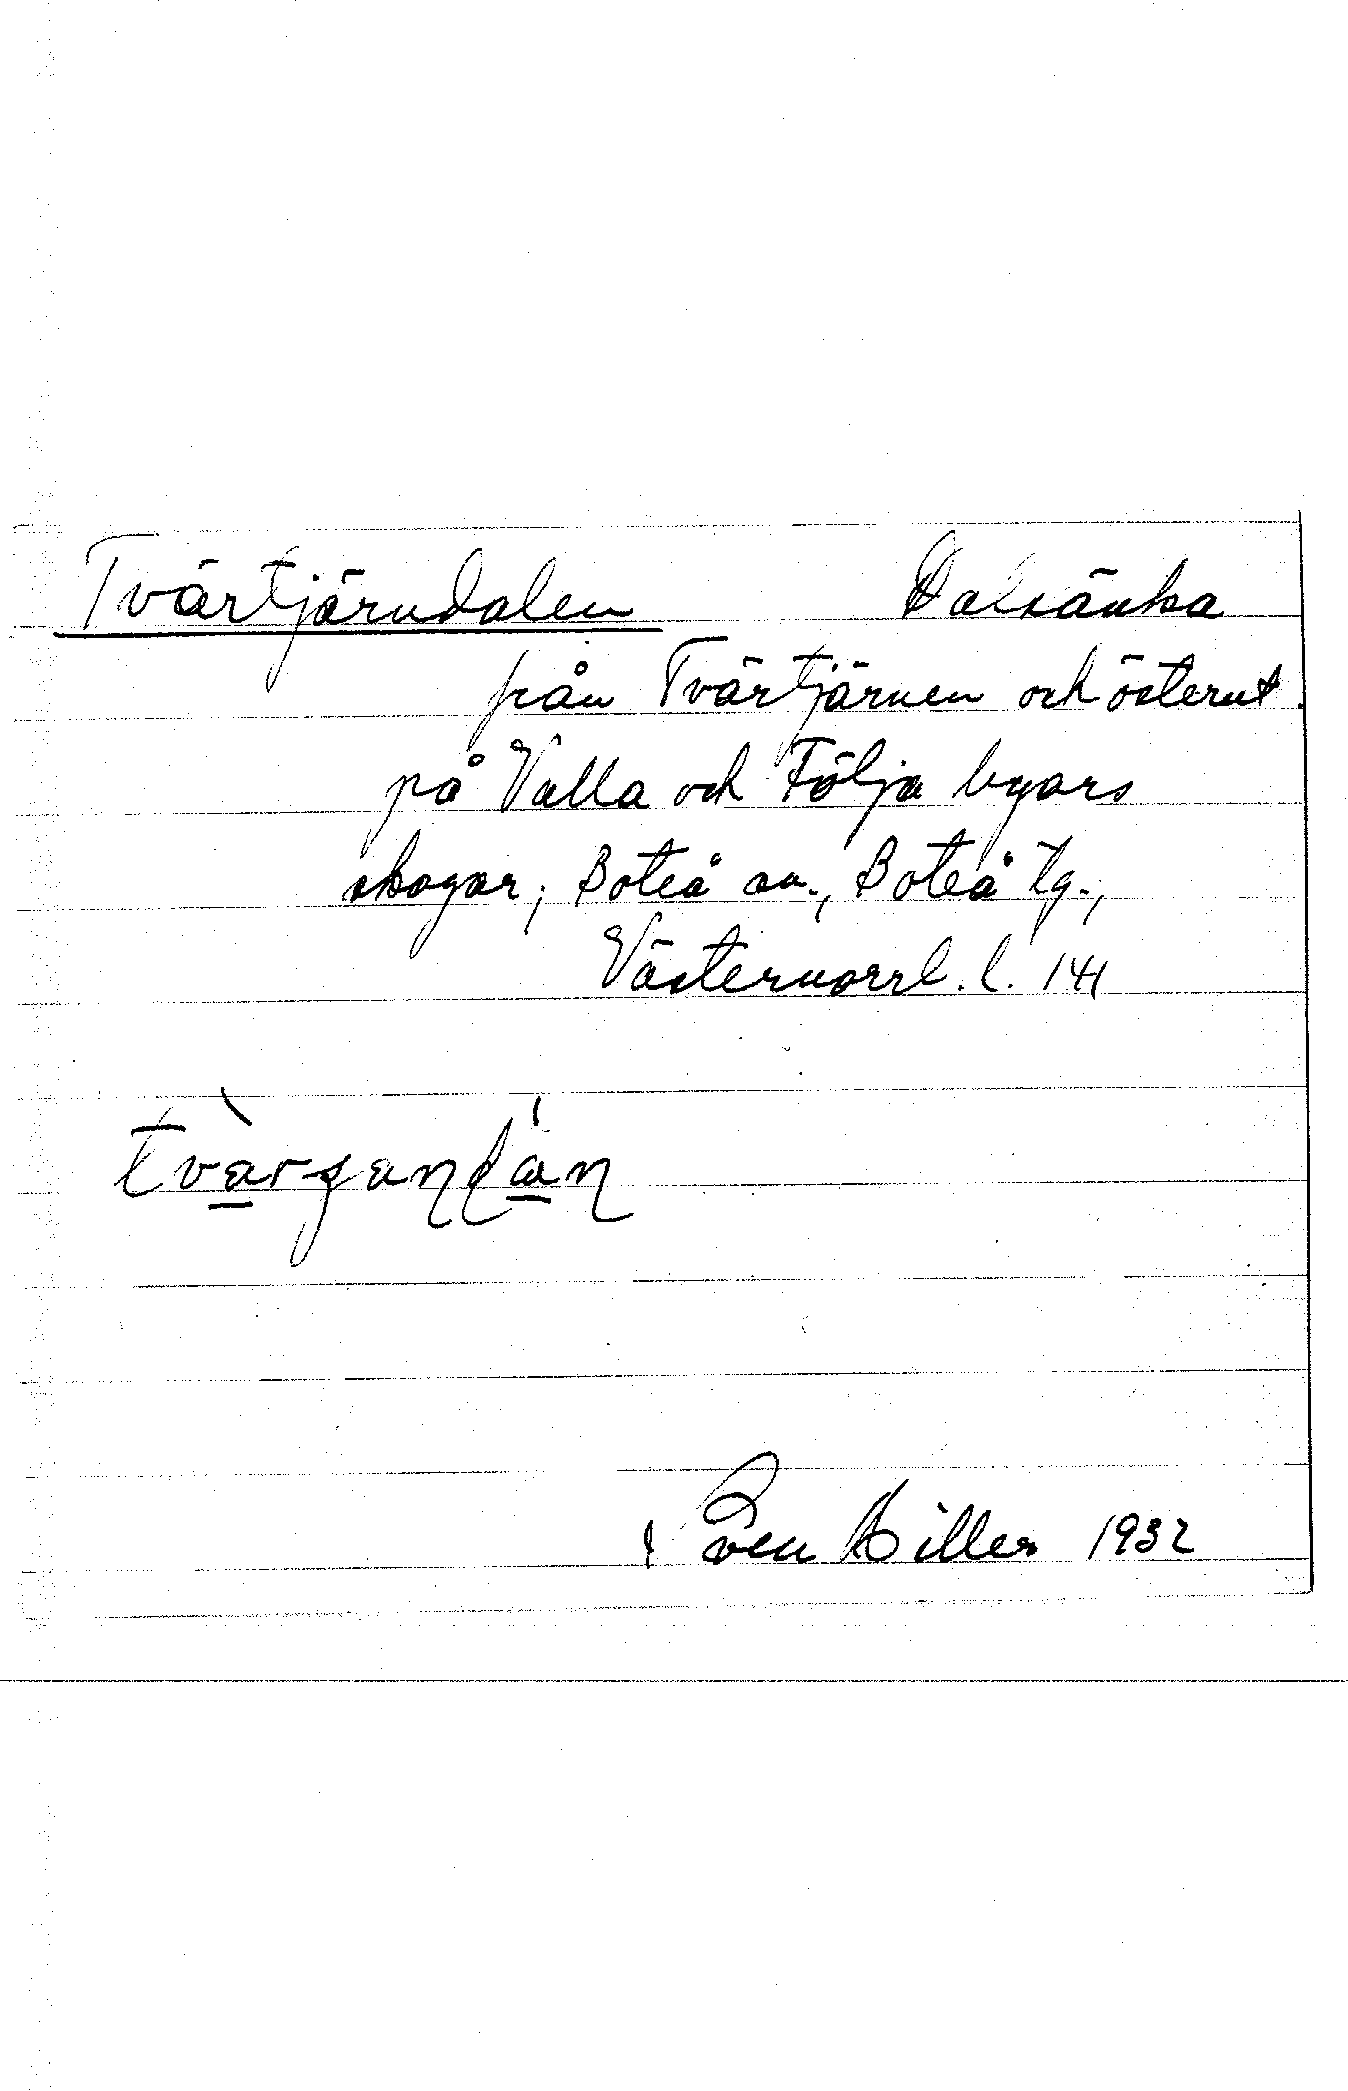 Tvärtjärndalen Dalsänka
från Tvärtjärnen och österut
på Valla och Följa byars
skogar; Boteå sn., Boteå tg.,
Västernorrl. l. 141
Sven Hiller 1932